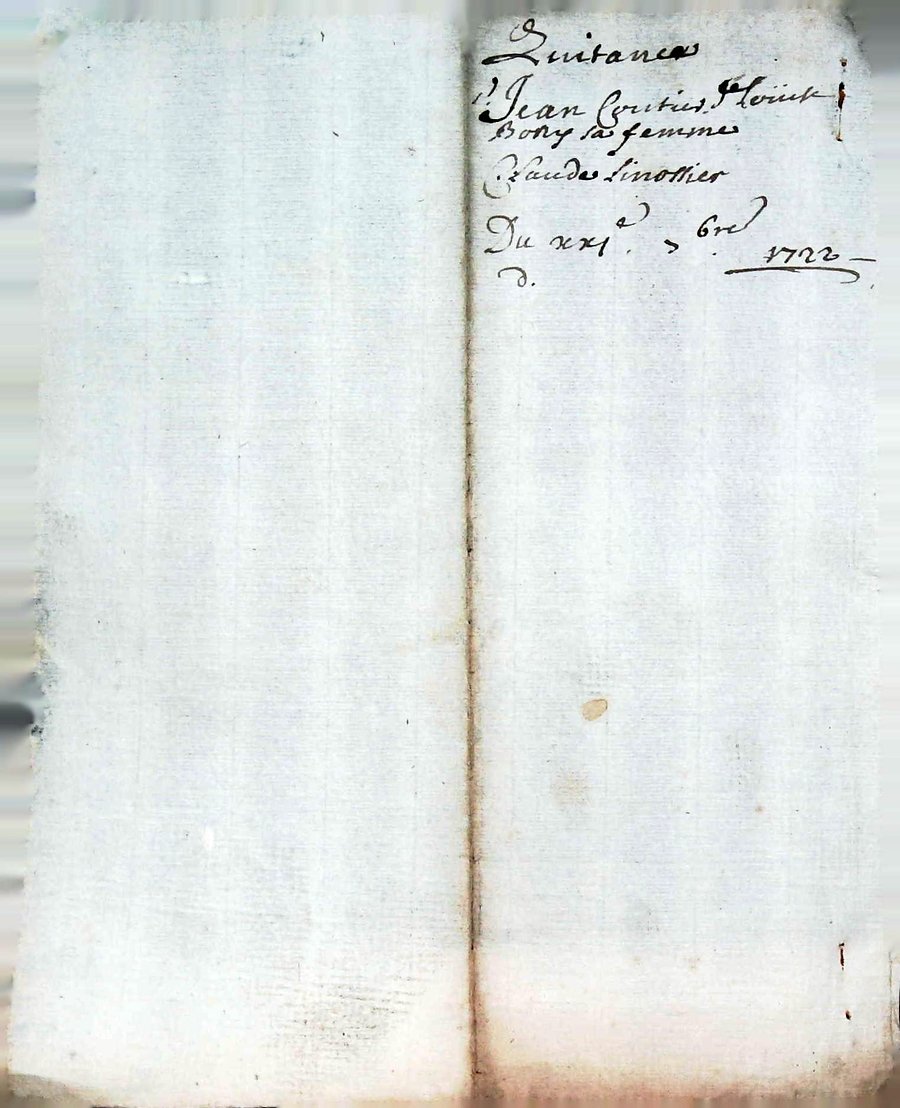 Quitance
Jean Coutier &
Bony sa femme
Claude Linossier
Du xxi.e 7bre
1722
d.